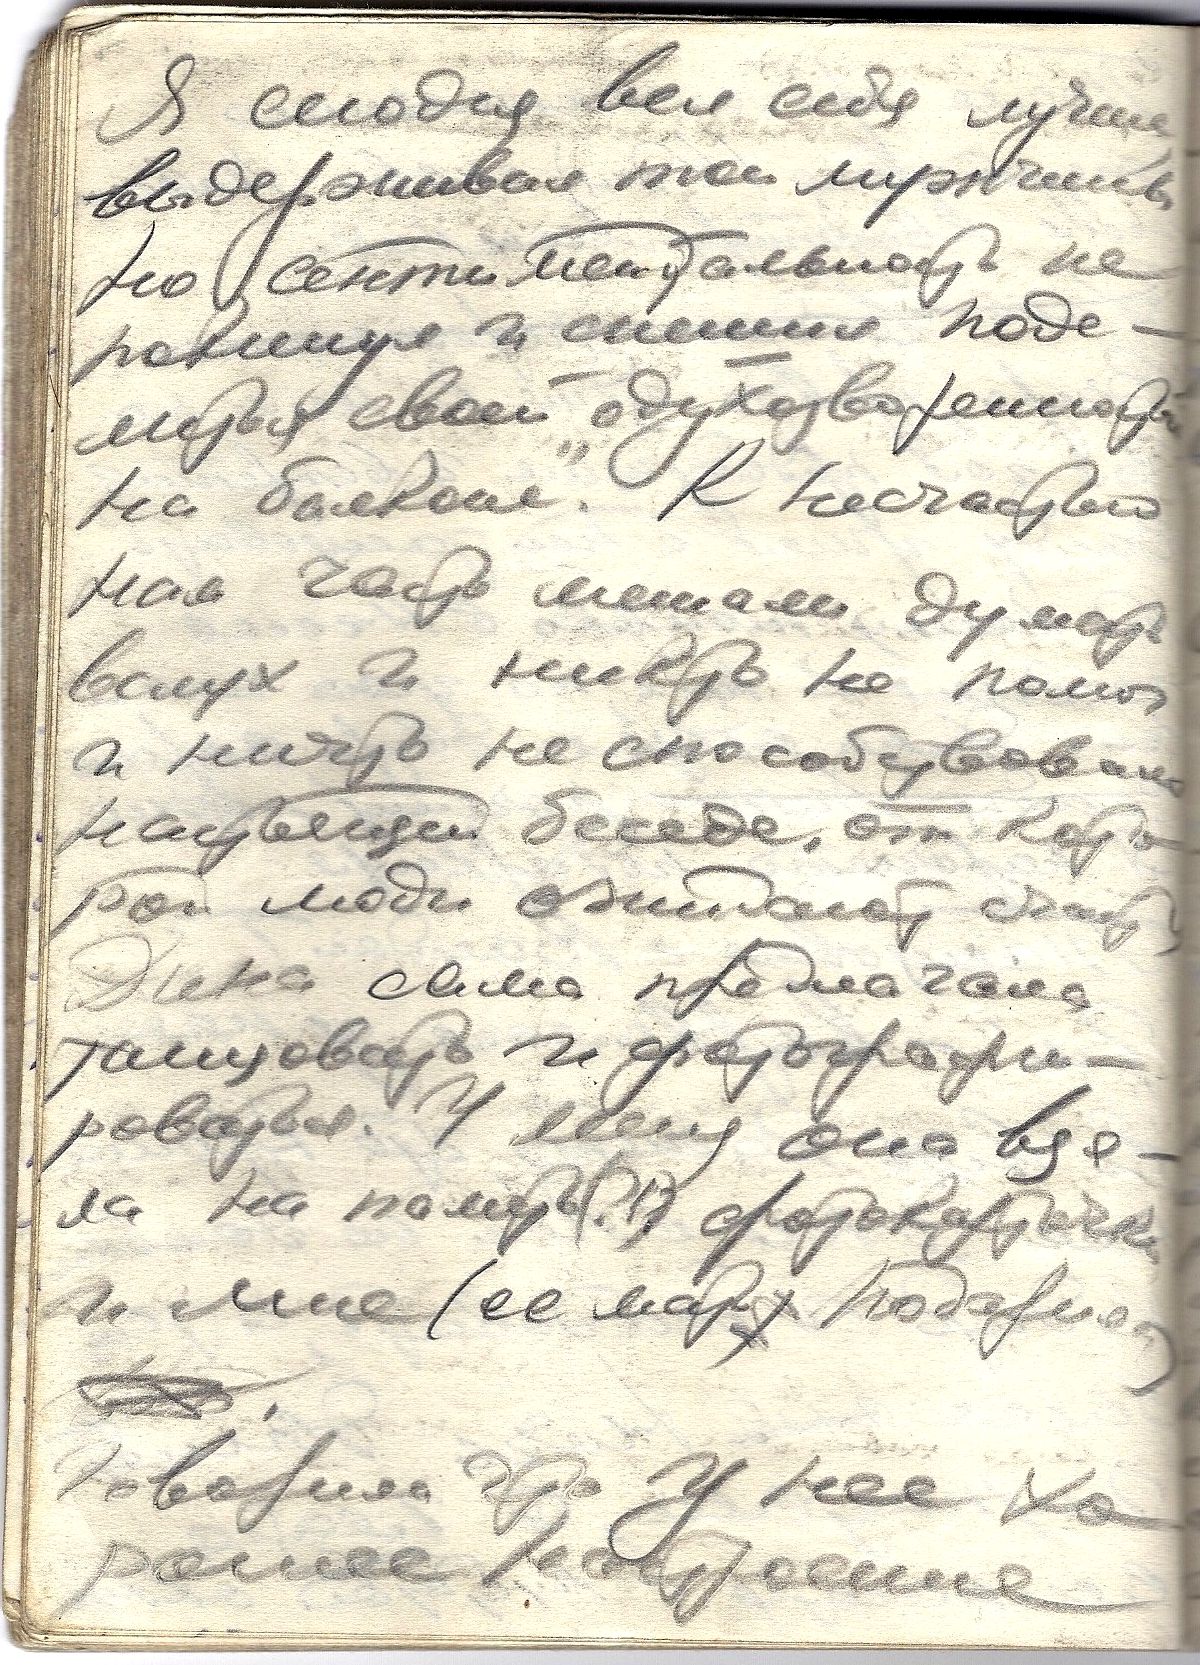 Я сегодня вел себя лучше
выдерживал тон мужчины
но сентиментальность не
покинул и спешил поде-
литься своей „одухотворенностью
на балконе". К несчастью
нам часто мешали думать
вслух и никто не помог
и ничто не способствовало
настоящей беседе, от кото
рой люди ожидают счастья
Дина сама предлагала
танцовать и фотографи-
роваться. У меня она взя-
ла на память (?!) фотокарточку
и мне (ее мать подарила)
Говорила что у нее хо
рошее настроение